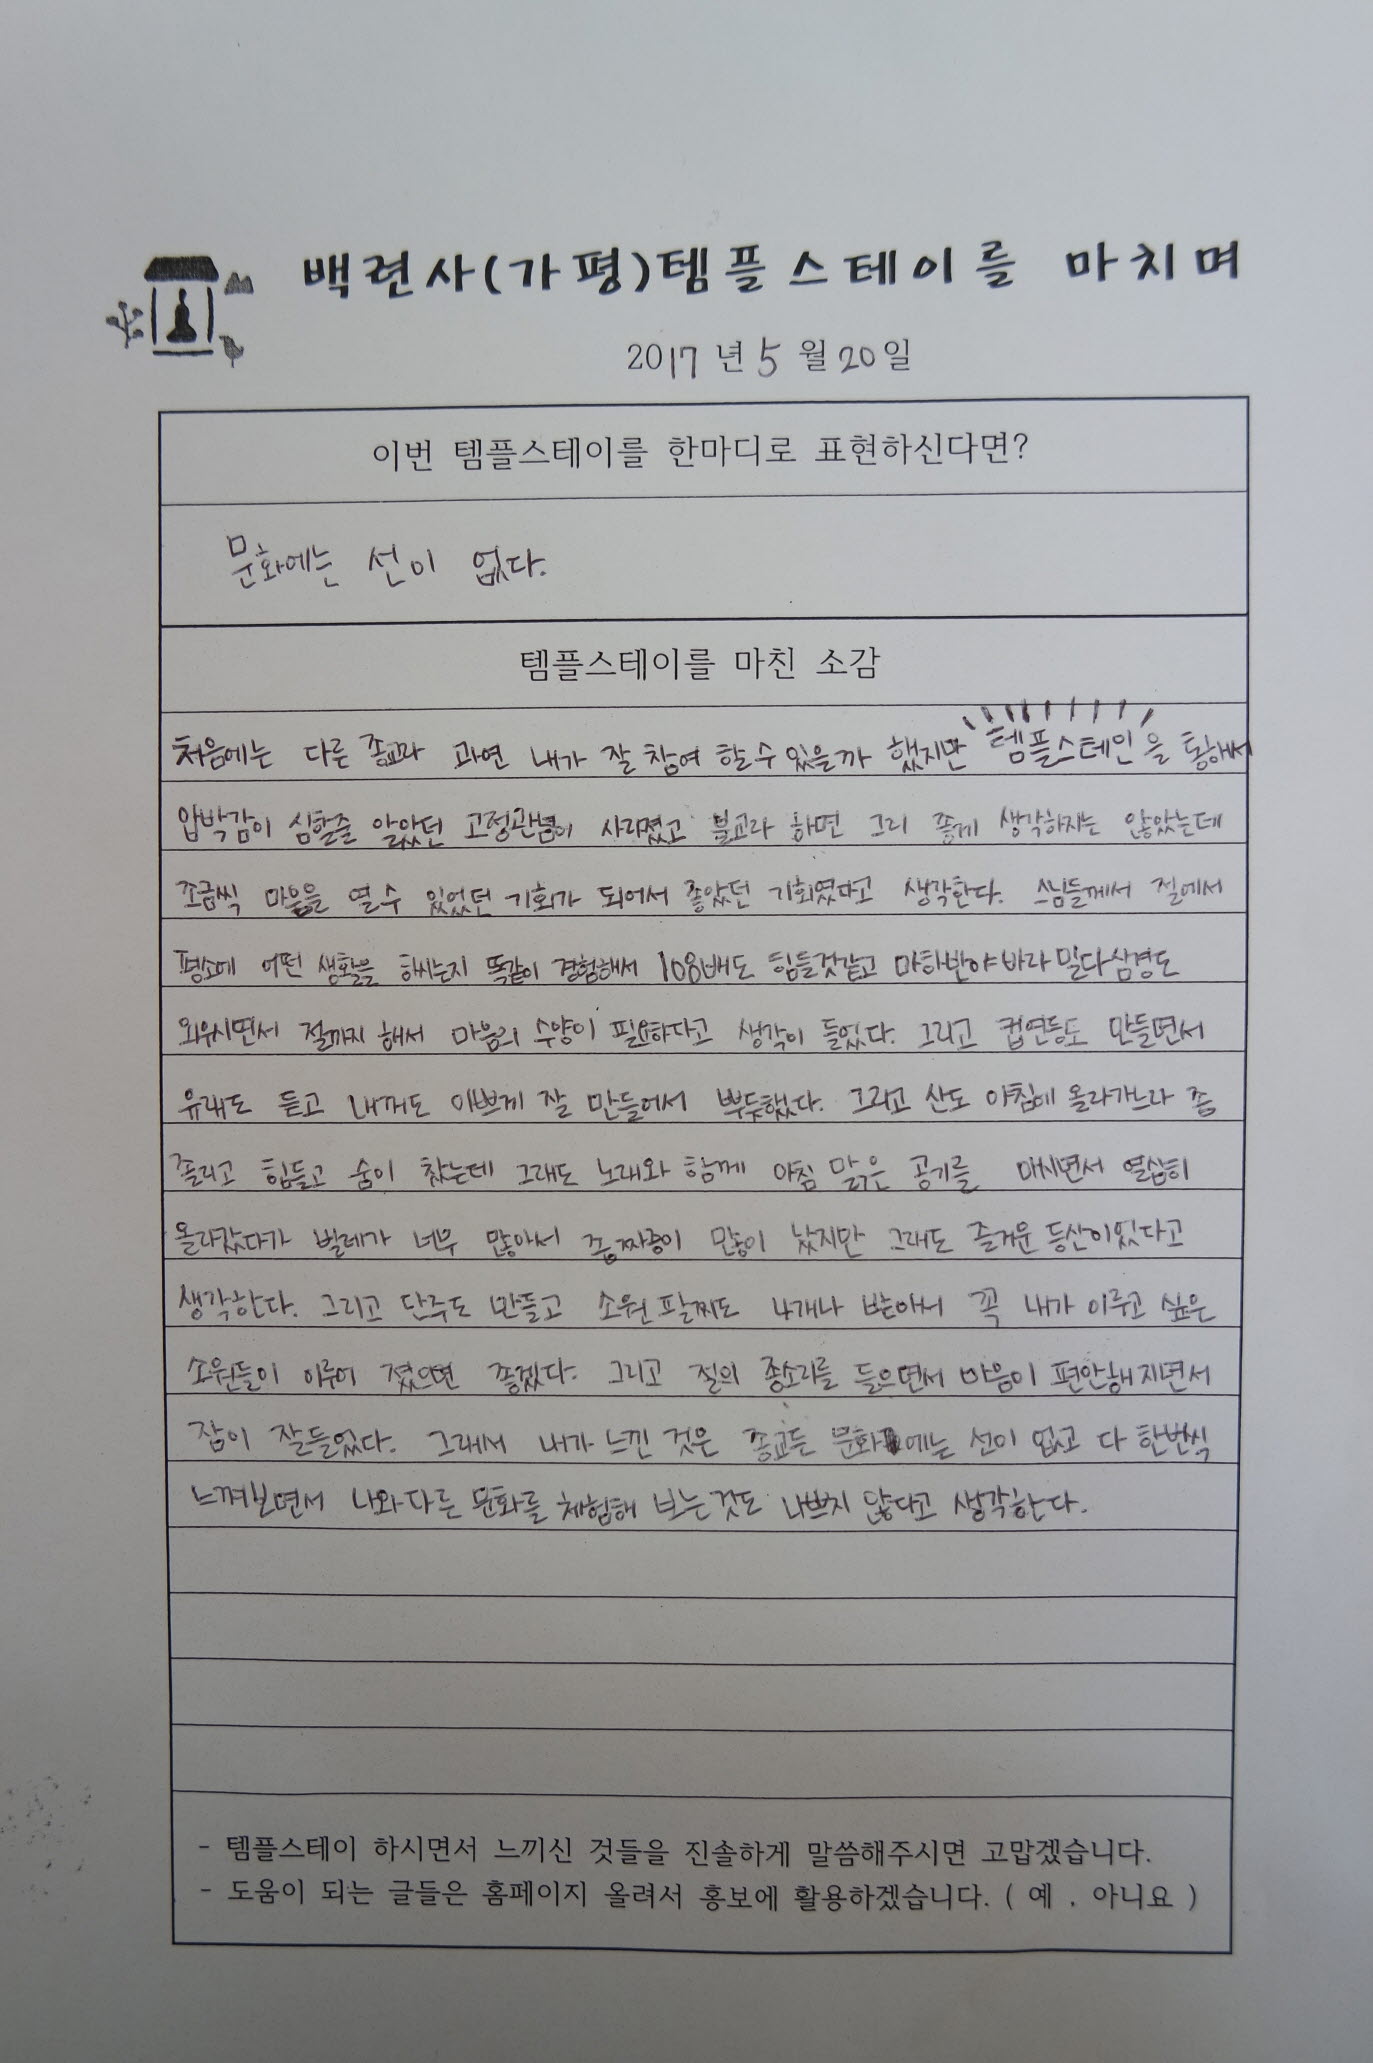 백련사(가평)템플스테이를 마치며
2017년 5월 20일
이번 템플스테이를 한마디로 표현하신다면?
문화에는 선이 없다.
템플스테이를 마친 소감
처음에는 다른 종교라 과연 내가 잘 참여 할수 있을까 했지만 템플스테인을 통해서
압박감이 심할줄 알았던 고정관념이 사라졌고 불교라 하면 그리 좋게 생각하지는 않았는데
조금씩 마음을 열수 있었던 기회가 되어서 좋았던 기회였다고 생각한다. 스님들께서 절에서
평소에 어떤 생활을 하시는지 똑같이 경험해서 108배도 힘들것같고 마하반야바라밀다심경도
외우시면서 절까지 해서 마음의 수양이 필요하다고 생각이 들었다. 그리고 컵연등도 만들면서
유래도 듣고 내꺼도 이쁘게 잘 만들어서 뿌듯했다. 그리고 산도 아침에 올라가느라 좀
졸리고 힘들고 숨이 찼는데 그래도 노래와 함께 아침 맑은 공기를 마시면서 열심히
올라갔다가 벌레가 너무 많아서 좀 짜증이 많이 났지만 그래도 즐거운 등산이었다고
생각한다. 그리고 단주도 만들고 소원 팔찌도 4개나 받아서 꼭 내가 이루고 싶은
소원들이 이루어 졌으면 좋겠다. 그리고 절의 종소리를 들으면서 마음이 편안해지면서
잠이 잘들었다. 그래서 내가 느낀 것은 종교든 문화에는 선이 없고 다 한번씩
느껴보면서 나와 다른 문화를 체험해 보는것도 나쁘지 않다고 생각한다.
- 템플스테이 하시면서 느끼신 것들을 진솔하게 말씀해주시면 고맙겠습니다.
- 도움이 되는 글들은 홈페이지 올려서 홍보에 활용하겠습니다. ( 예 , 아니요 )